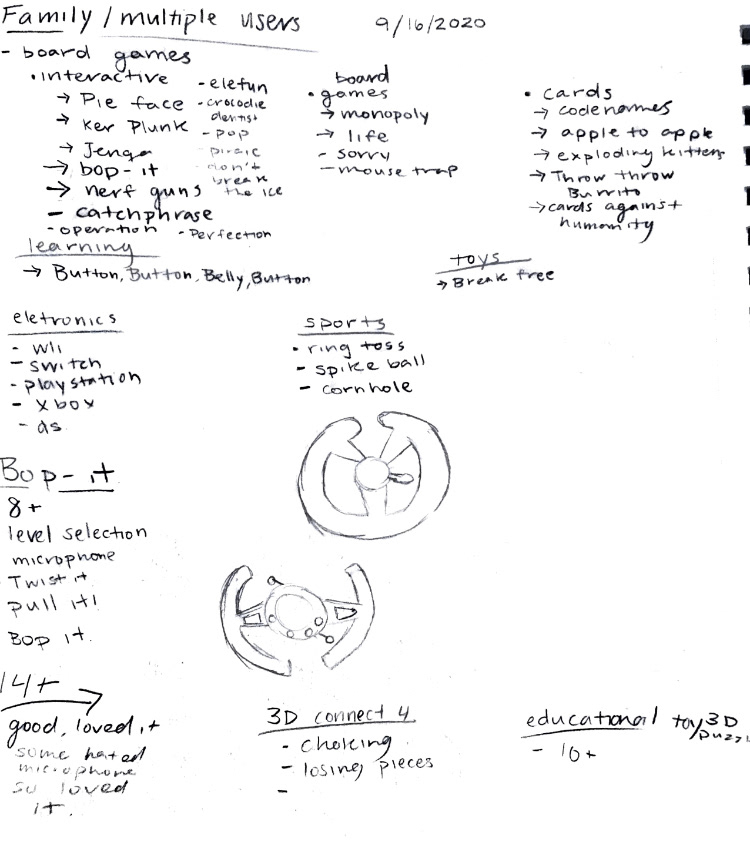 Family / multiple users 9/16/2020
- board games
• interactive
→ Pie face
→ Ker Plunk
→ Jenga
→ bop - it
→ nerf guns
- catchphrase
- operation - Perfection
- elefun
- crocodie
dentist
- pop
- don't
break
the ice
board
• games
→ monopoly
→ life
- sorry
- mouse trap
• cards
→ codenames
→ apple to apple
→ exploding kittens
→ Throw throw
Burrito
→ cards against
humanity
learning
→ Button, Button, Belly, Button
toys
→ Break free
eletronics
- wii
- switch
- playstation
- xbox
- ds
sports
• ring toss
- spike ball
- cornhole
Bop - it
8+
level selection
microphone
Twist it
pull it!
BOP it.
14+
good, loved it
some hated
microphone
su loved
it.
3D connect 4
- choking
- losing pieces
-
educational toy/3D
puzzl
- 10+